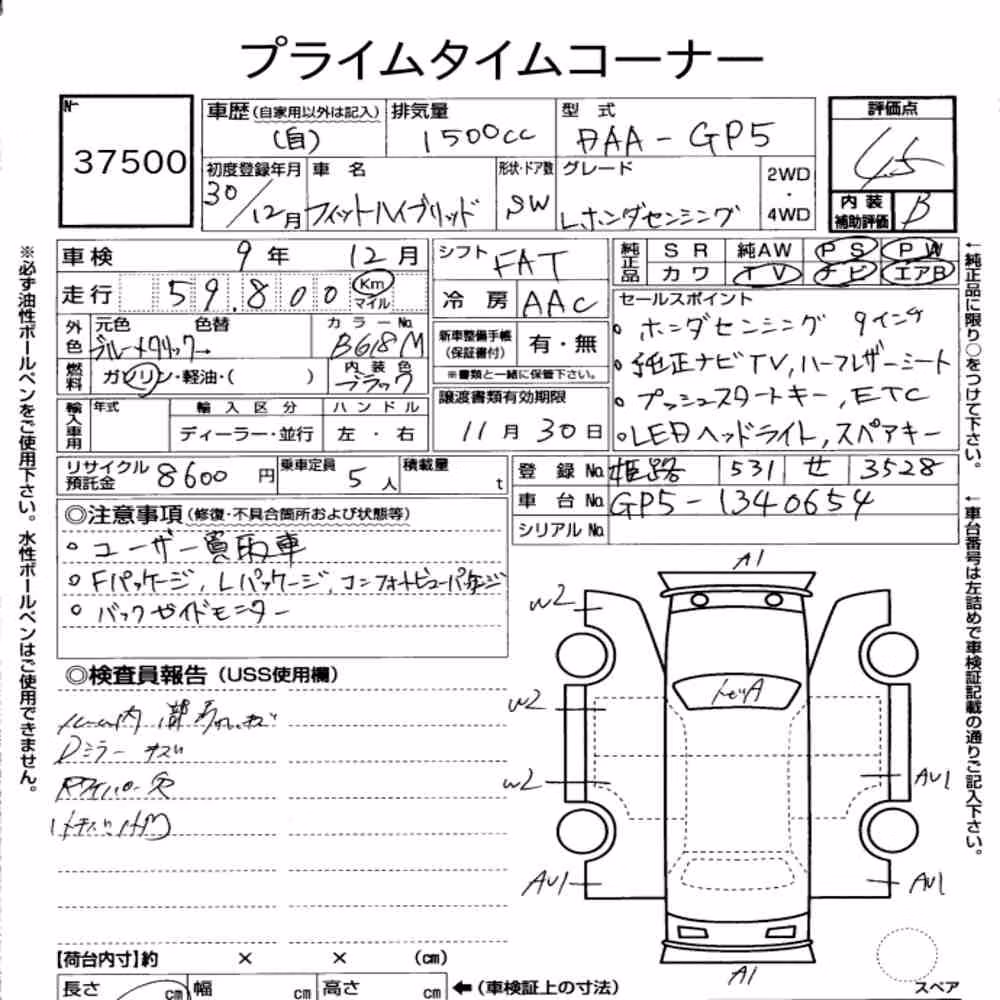 プライムタイムコーナー
No.
37500
車歴(自家用以外は記入)
(自)
排気量
1500cc
型式
DAA-GP5
評価点
4.5
初度登録年月
30/12月
車名
フィットハイブリッド
形状・ドア数
SW
グレード
Lホンダセンシング
2WD
・
4WD
内装
補助評価
B
車検 9年 12月
走行 59,800 Km
マイル
外色
元色 色替
ブルーメタリック→
カラーNo.
B618M
燃料
ガソリン・軽油・( )
内装色
ブラック
輸入車用
年式
輸入区分
ディーラー・並行
ハンドル
左・右
シフト
FAT
冷房
AAC
新車整備手帳
(保証書付)
有・無
※書類と一緒に保管下さい。
譲渡書類有効期限
11月30日
純正品
SR 純AW PS PW
カワ TV ナビ エアB
セールスポイント
。ホンダセンシング 9インチ
。純正ナビTV,ハーフレザーシート
。プッシュスタートキー,ETC
。LEDヘッドライト,スペアキー
リサイクル
預託金
8600円
乗車定員
5人
積載量
t
登録No. 姫路 531 せ 3528
車台No. GP5-1340654
シリアルNo.
◎注意事項(修復・不具合箇所および状態等)
。ユーザー買取車
。Fパッケージ,Lパッケージ,コンフォートビューパッケージ
。バックガイドモニター
◎検査員報告(USS使用欄)
Dミラー キズ
A1
W2
W2
W2
AU1
AU1
AU1
A1
【荷台内寸】約 × × (cm)
長さ cm 幅 cm 高さ cm
←(車検証上の寸法)
スペア
※必ず油性ボールペンをご使用下さい。水性ボールペンはご使用できません。
←純正品に限り○をつけて下さい。
←車台番号は左詰めで車検証記載の通りご記入下さい。